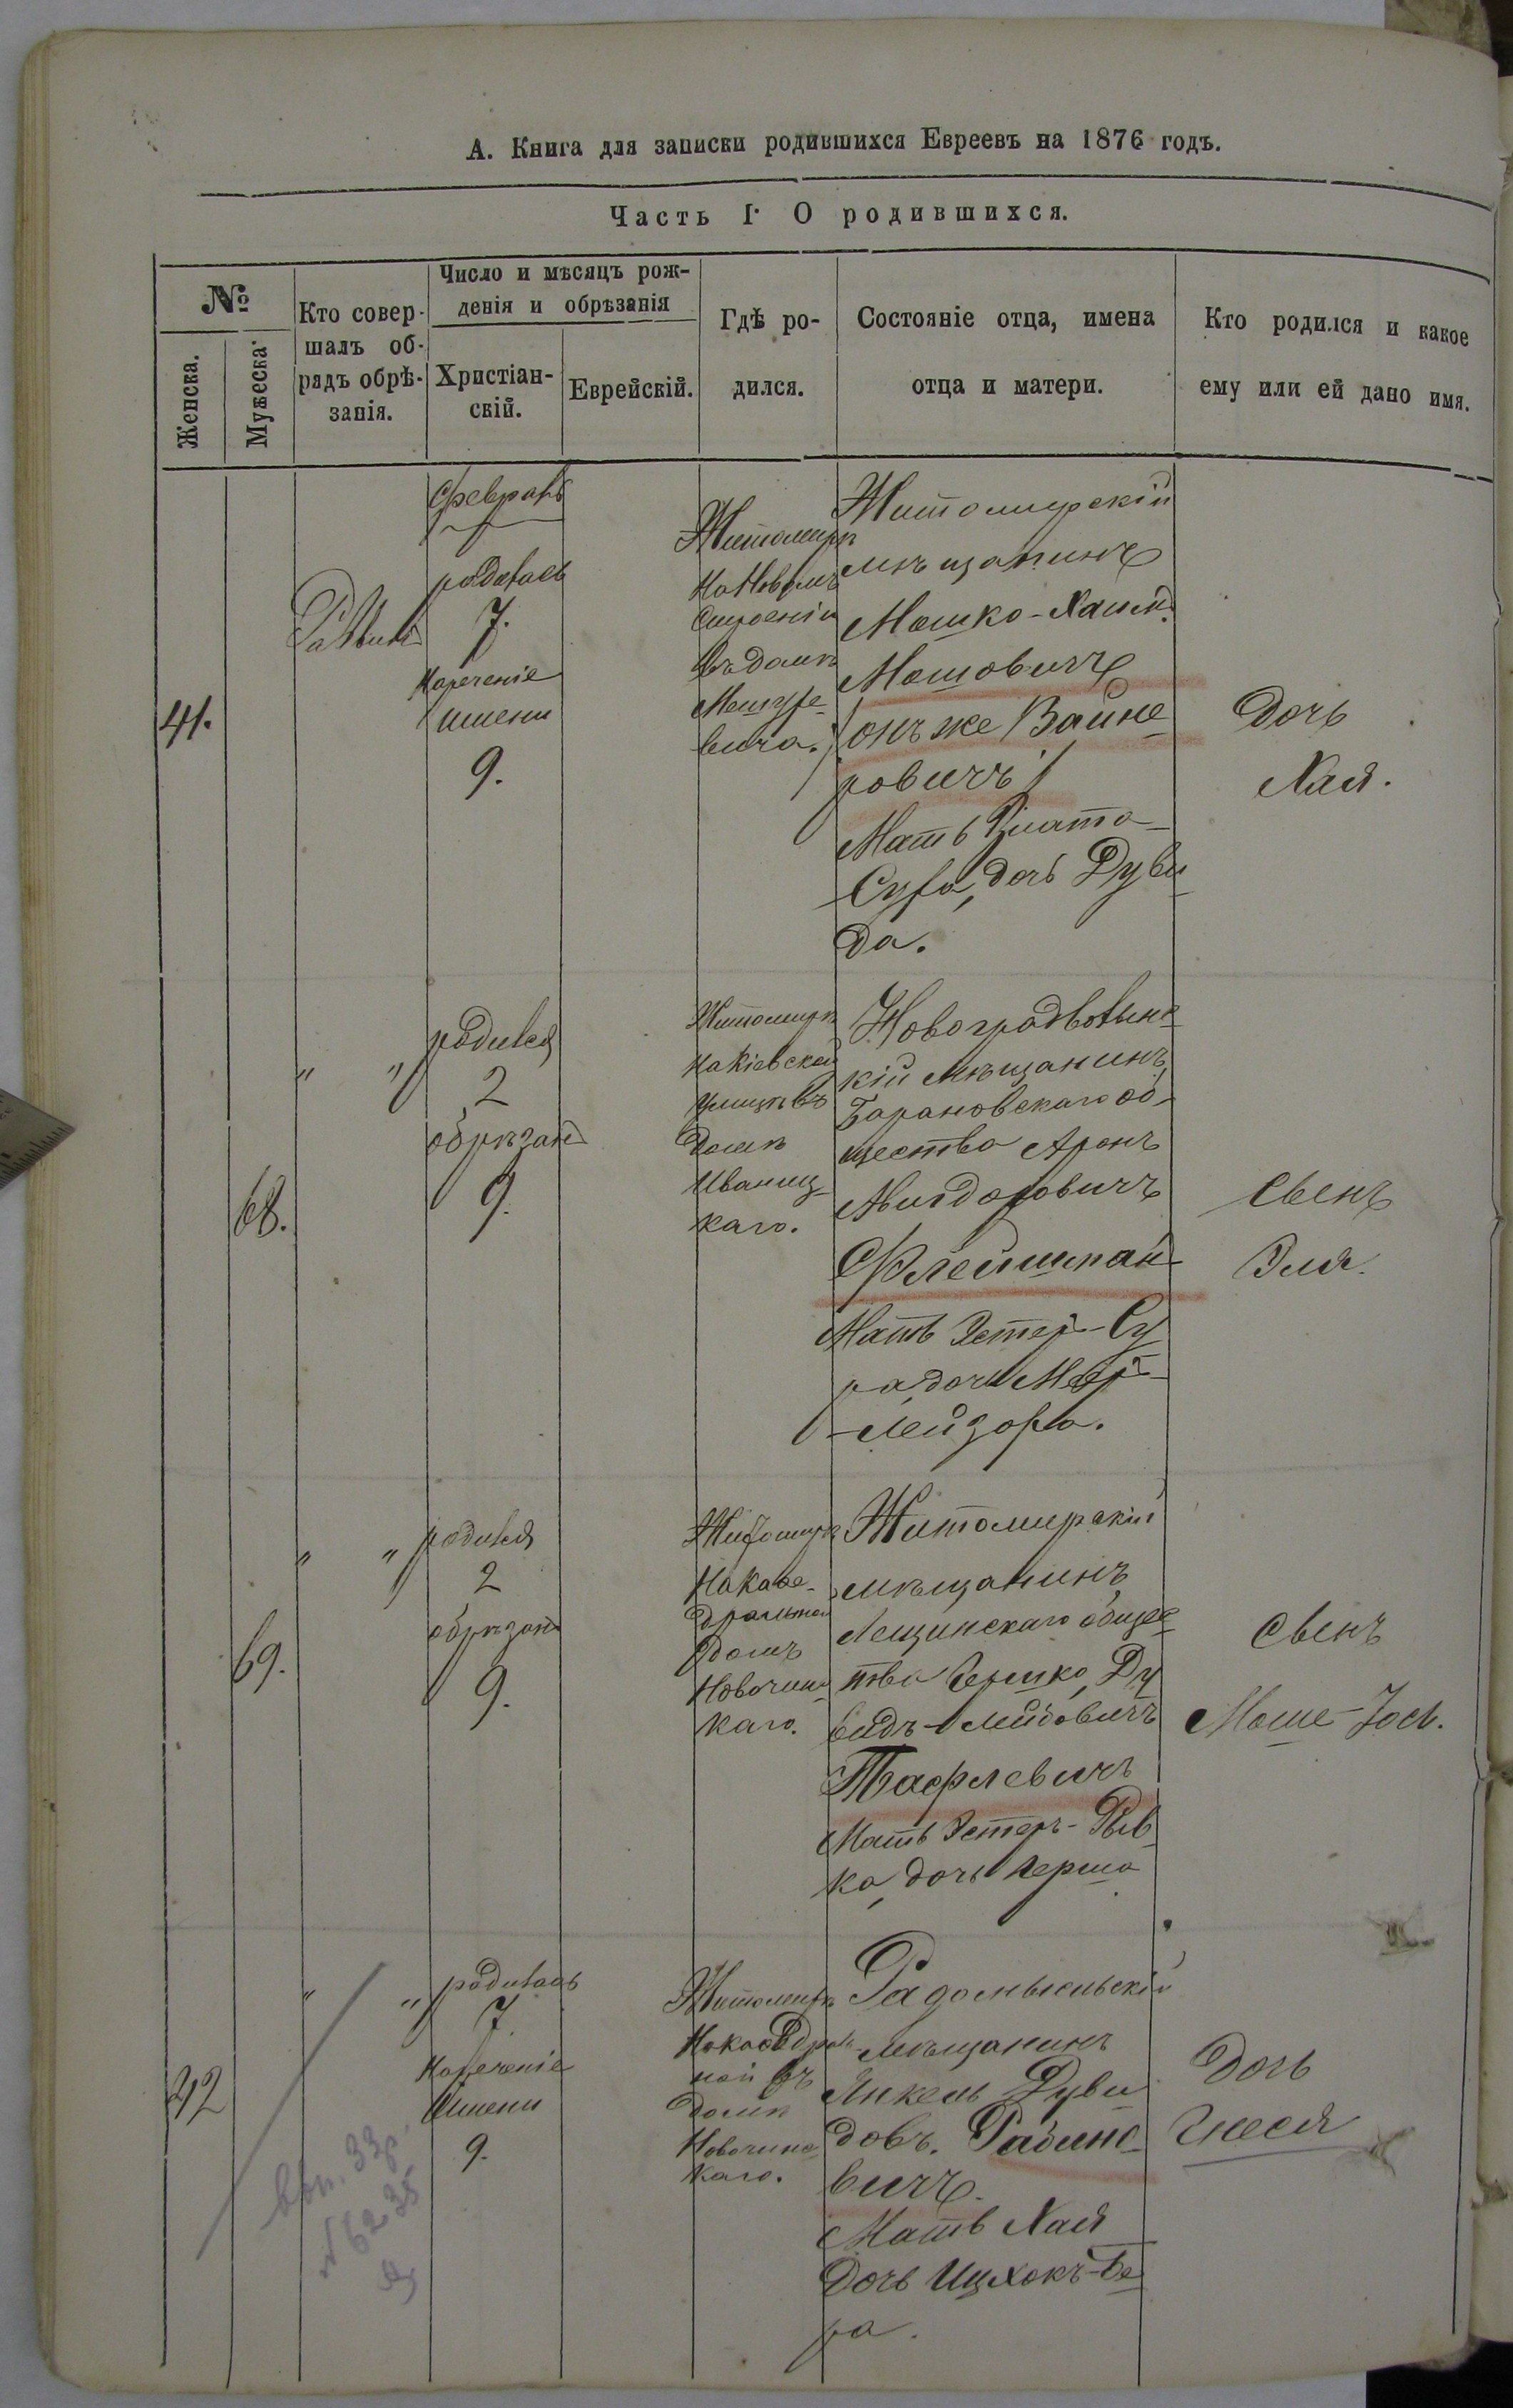 А. Книга для записки родившихся Евреевъ на 1876 годъ.
Часть I. О родившихся.
№
Женска.
Мужеска
Кто совер-
шалъ об-
рядъ обрѣ-
занія.
Число и мѣсяцъ рож-
денія и обрѣзанія
Христіан-
скій.
Еврейскій.
Гдѣ ро-
дился.
Состояніе отца, имена
отца и матери.
Кто родился и какое
ему или ей дано имя.
41.
Раввинъ
Февраль
родилась
7.
Нареченіе
имени
9.
Житомирѣ
на Новомъ
Строеніи
въ домѣ
вича.
Житомирскій
мѣщанинъ
Мошко-Хаим.
Мошовичъ
/онъ же Вайне
ровичъ/
Мать Злата-
Сура, дочь Дуви
да.
Дочь
Хая.
68.
" "
родился
2
обрѣзанъ
9.
Житомирѣ
на Кіевской
улицѣ въ
домѣ
Иваниц-
каго.
Новоградволынс
кій мѣщанинъ,
Барановскаго об-
щества Аронъ
Авигдоровичъ
Флейшман
Мать Эстер-Су
ра дочь Меер-
-Лейзора.
Сынъ
Эля.
69.
" "
родился
2
обрѣзанъ
9.
Житомирѣ
на Кафе-
дральной
домъ
Новочинс
каго.
Житомирскій
мѣщанинъ
Лещинскаго общес
тва Гершко, Ду
видъ-Лейбовичъ
Мать Эстеръ-Рыв
ка, дочь Герша
Сынъ
Моше-Іос.
42
" "
родилась
7.
Нареченіе
Имени
9.
Житомирѣ
на Кафедраль
ной въ
домѣ
Новочинс
каго.
Радомысльскій
мѣщанинъ
Янкель Дуви
довъ. Рабино
вичъ.
Мать Хая
Дочь Ицхокъ-Бе
ра.
Дочь
Гнеся
№ 6235